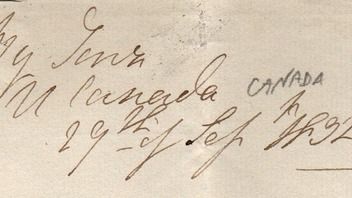 My Town
U Canada CANADA
29th of Sep 1832